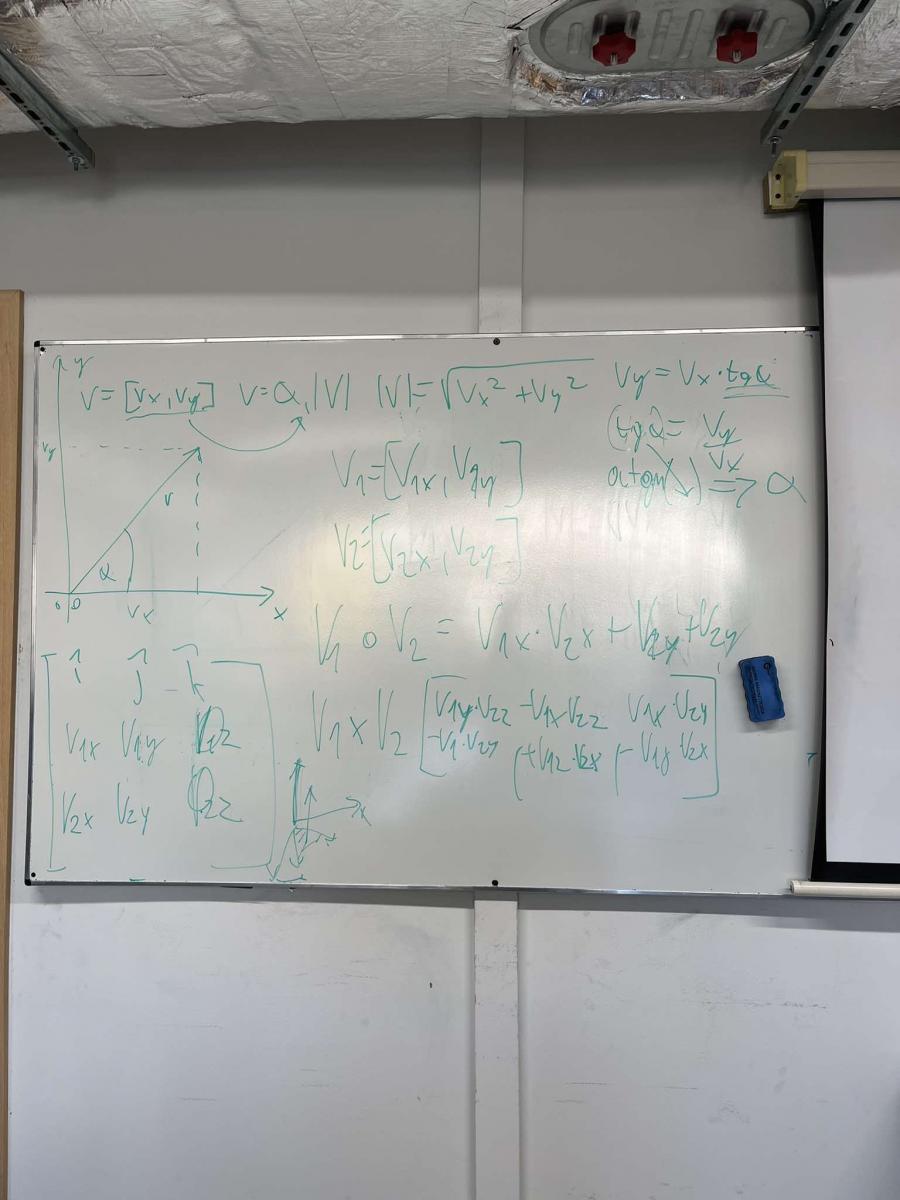 y
V = [Vx, Vy]   V = α, |V|   |V| = √Vx² + Vy²   Vy = Vx · tgα
(tgα) = Vy/Vx
=> α
Vy
V
α
0 0
Vx
x
V1 = [V1x, V1y]
V2 = [V2x, V2y]
V1 ∘ V2 = V1x · V2x + V2y + V2y
i j k
V1x V1y V1z
V2x V2y V2z
V1 × V2 [V1y · V2z - V1x V2z V1x · V2y
- V1 · V2y + V1z · V2x - V1y · V2x]
x